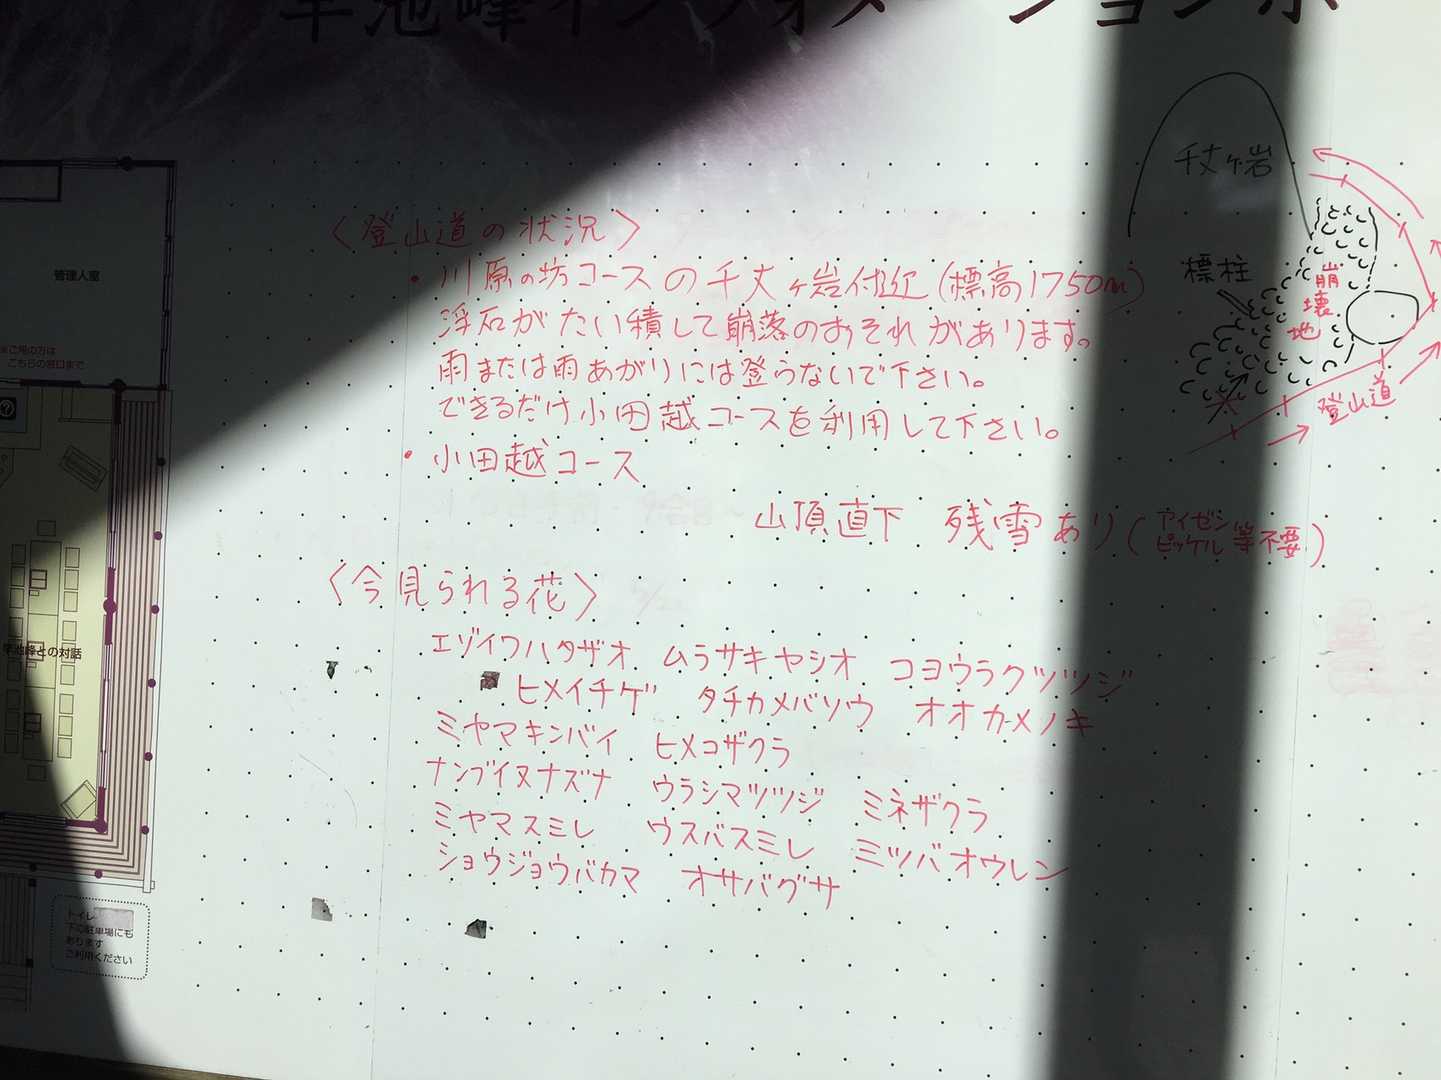 早池峰インフォメーションボ
千丈ヶ岩
標柱
崩壊地
登山道
管理人室
こちらの窓口まで
早池峰との対話
トイレ
下の駐車場にも
あります
ご利用ください
〈登山道の状況〉
・川原の坊コースの千丈ヶ岩付近(標高1750m)
浮石がたい積して崩落のおそれがあります。
雨または雨あがりには登らないで下さい。
できるだけ小田越コースを利用して下さい。
・小田越コース
山頂直下 残雪あり(アイゼン ピッケル等不要)
〈今見られる花〉
エゾイワハタザオ ムラサキヤシオ コヨウラクツツジ
ヒメイチゲ タチカメバソウ オオカメノキ
ミヤマキンバイ ヒメコザクラ
ナンブイヌナズナ ウラシマツツジ ミネザクラ
ミヤマスミレ ウスバスミレ ミツバオウレン
ショウジョウバカマ オサバグサ